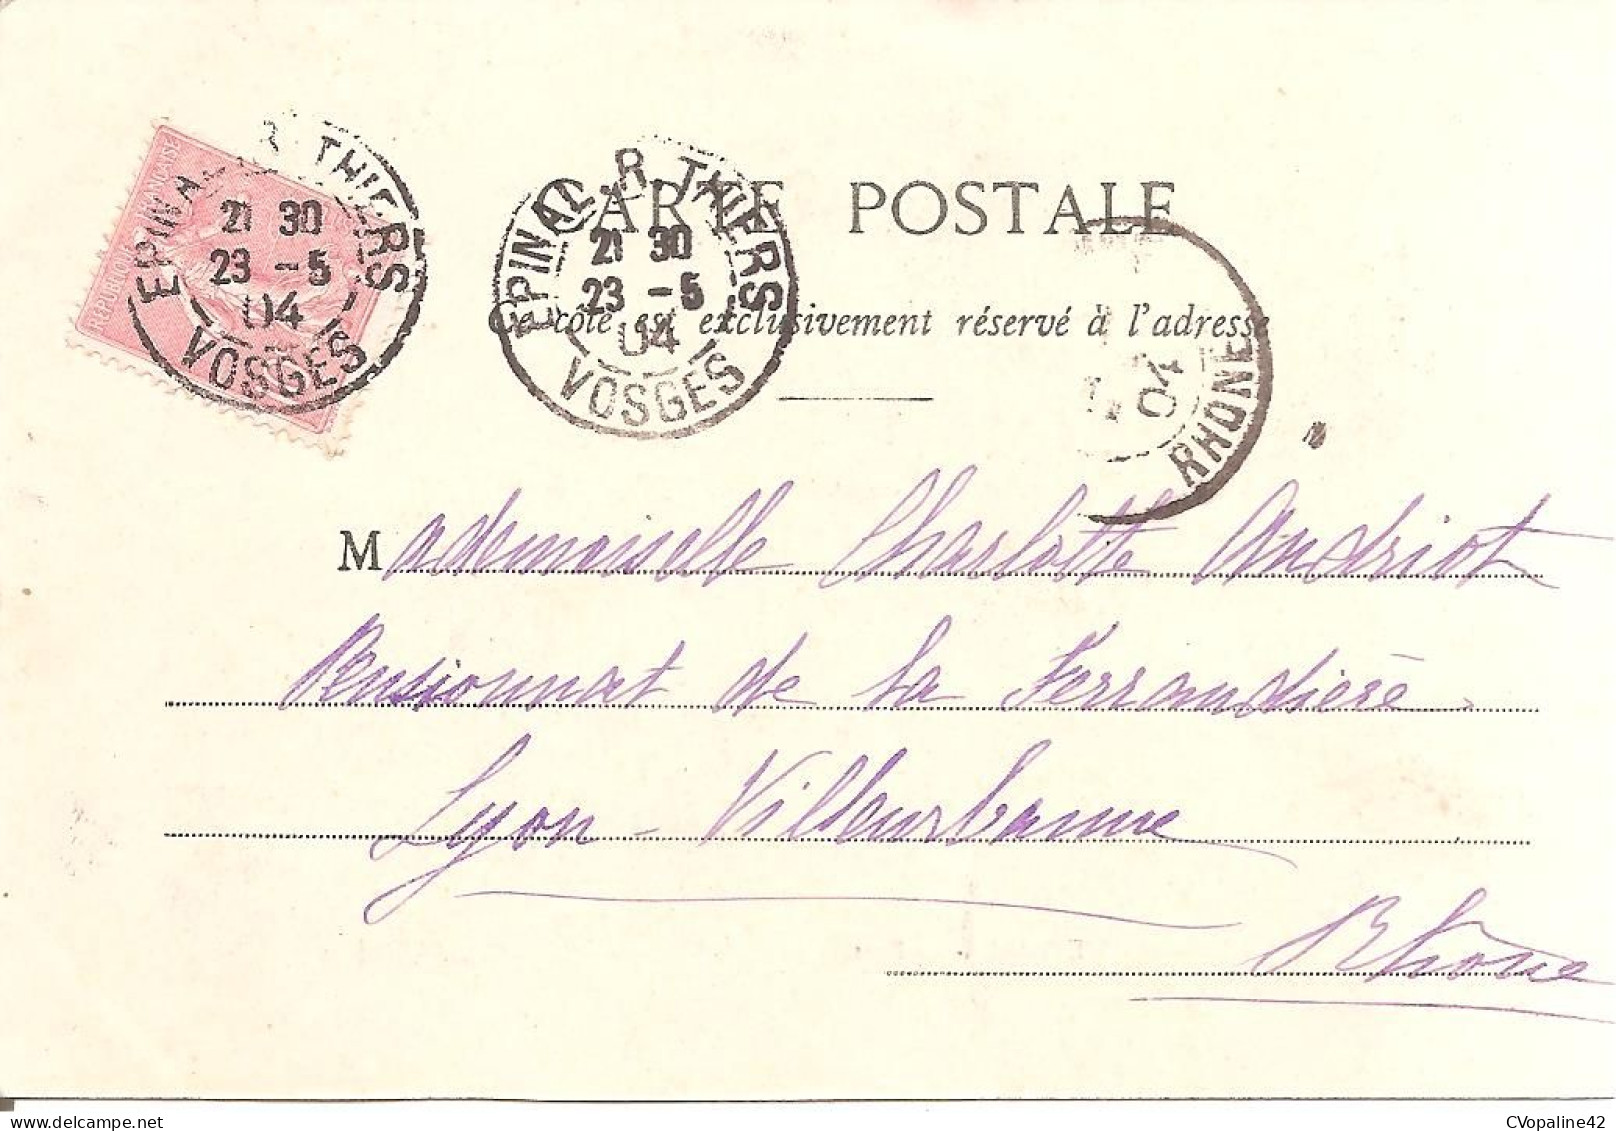 RÉPUBLIQUE FRANÇAISE
EPINAL R. THIERS
21 30
23 -5
04
VOSGES
EPINAL R. THIERS
21 30
23 -5
04
VOSGES
CARTE POSTALE
Ce côté est exclusivement réservé à l'adresse
04
RHONE
Mademoiselle Charlotte Andriot
Pensionnat de la Ferrandière
Lyon - Villeurbanne
Rhône
CVopaline42